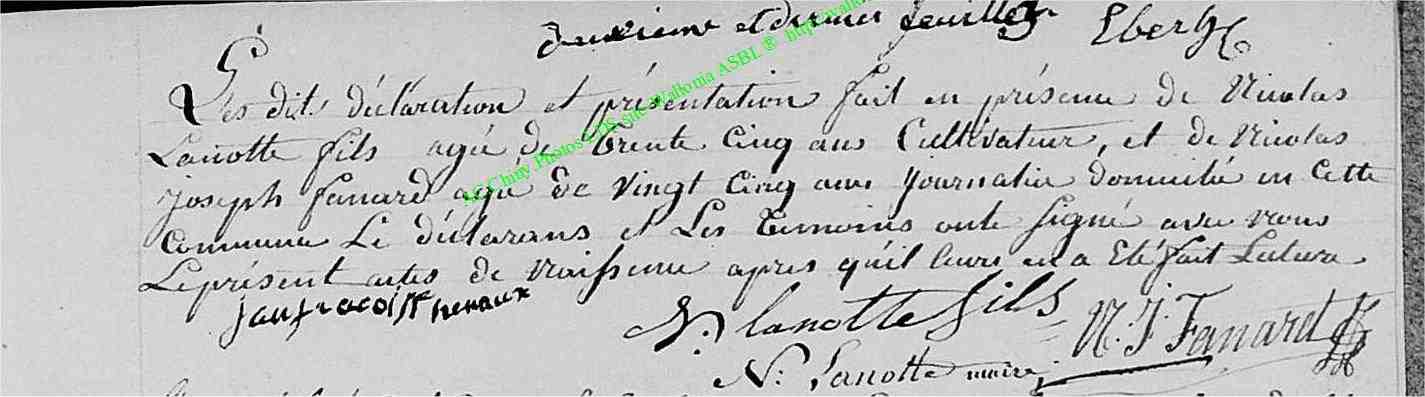 deuxieme et dernier feuillet Eberh
Les dit déclaration et présentation fait en présence de Nicolas
Lanotte fils agé de Trente Cinq ans Cultivateur, et de Nicolas
joseph fanard agé De vingt Cinq ans journalie domicilié en Cette
Commune Le déclarans et Les temoins onte signé avec nous
Leprésent actes de Naissence apres qu'il leurs en a Eté fait Lecture
janfracois henaux
N: lanotte fils N. J. Fanard
N: Lanotte maire